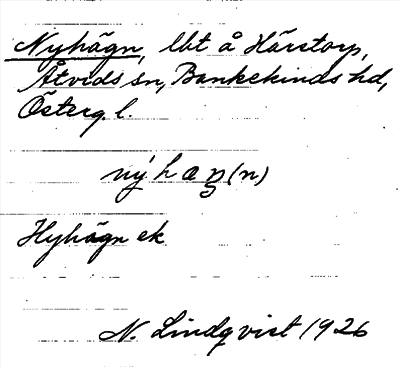 Nyhägn, lbt å Härstorp,
Åtvids sn, Bankekinds hd,
Österg. l.
nýhæŋ(n)
Hyhägn ek
N. Lindqvist 1926